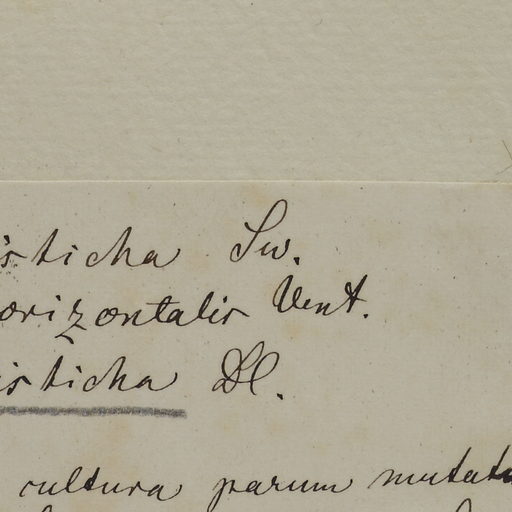 isticha Sw.
orizontalis Vent.
isticha Bl.
cultura parum mutata